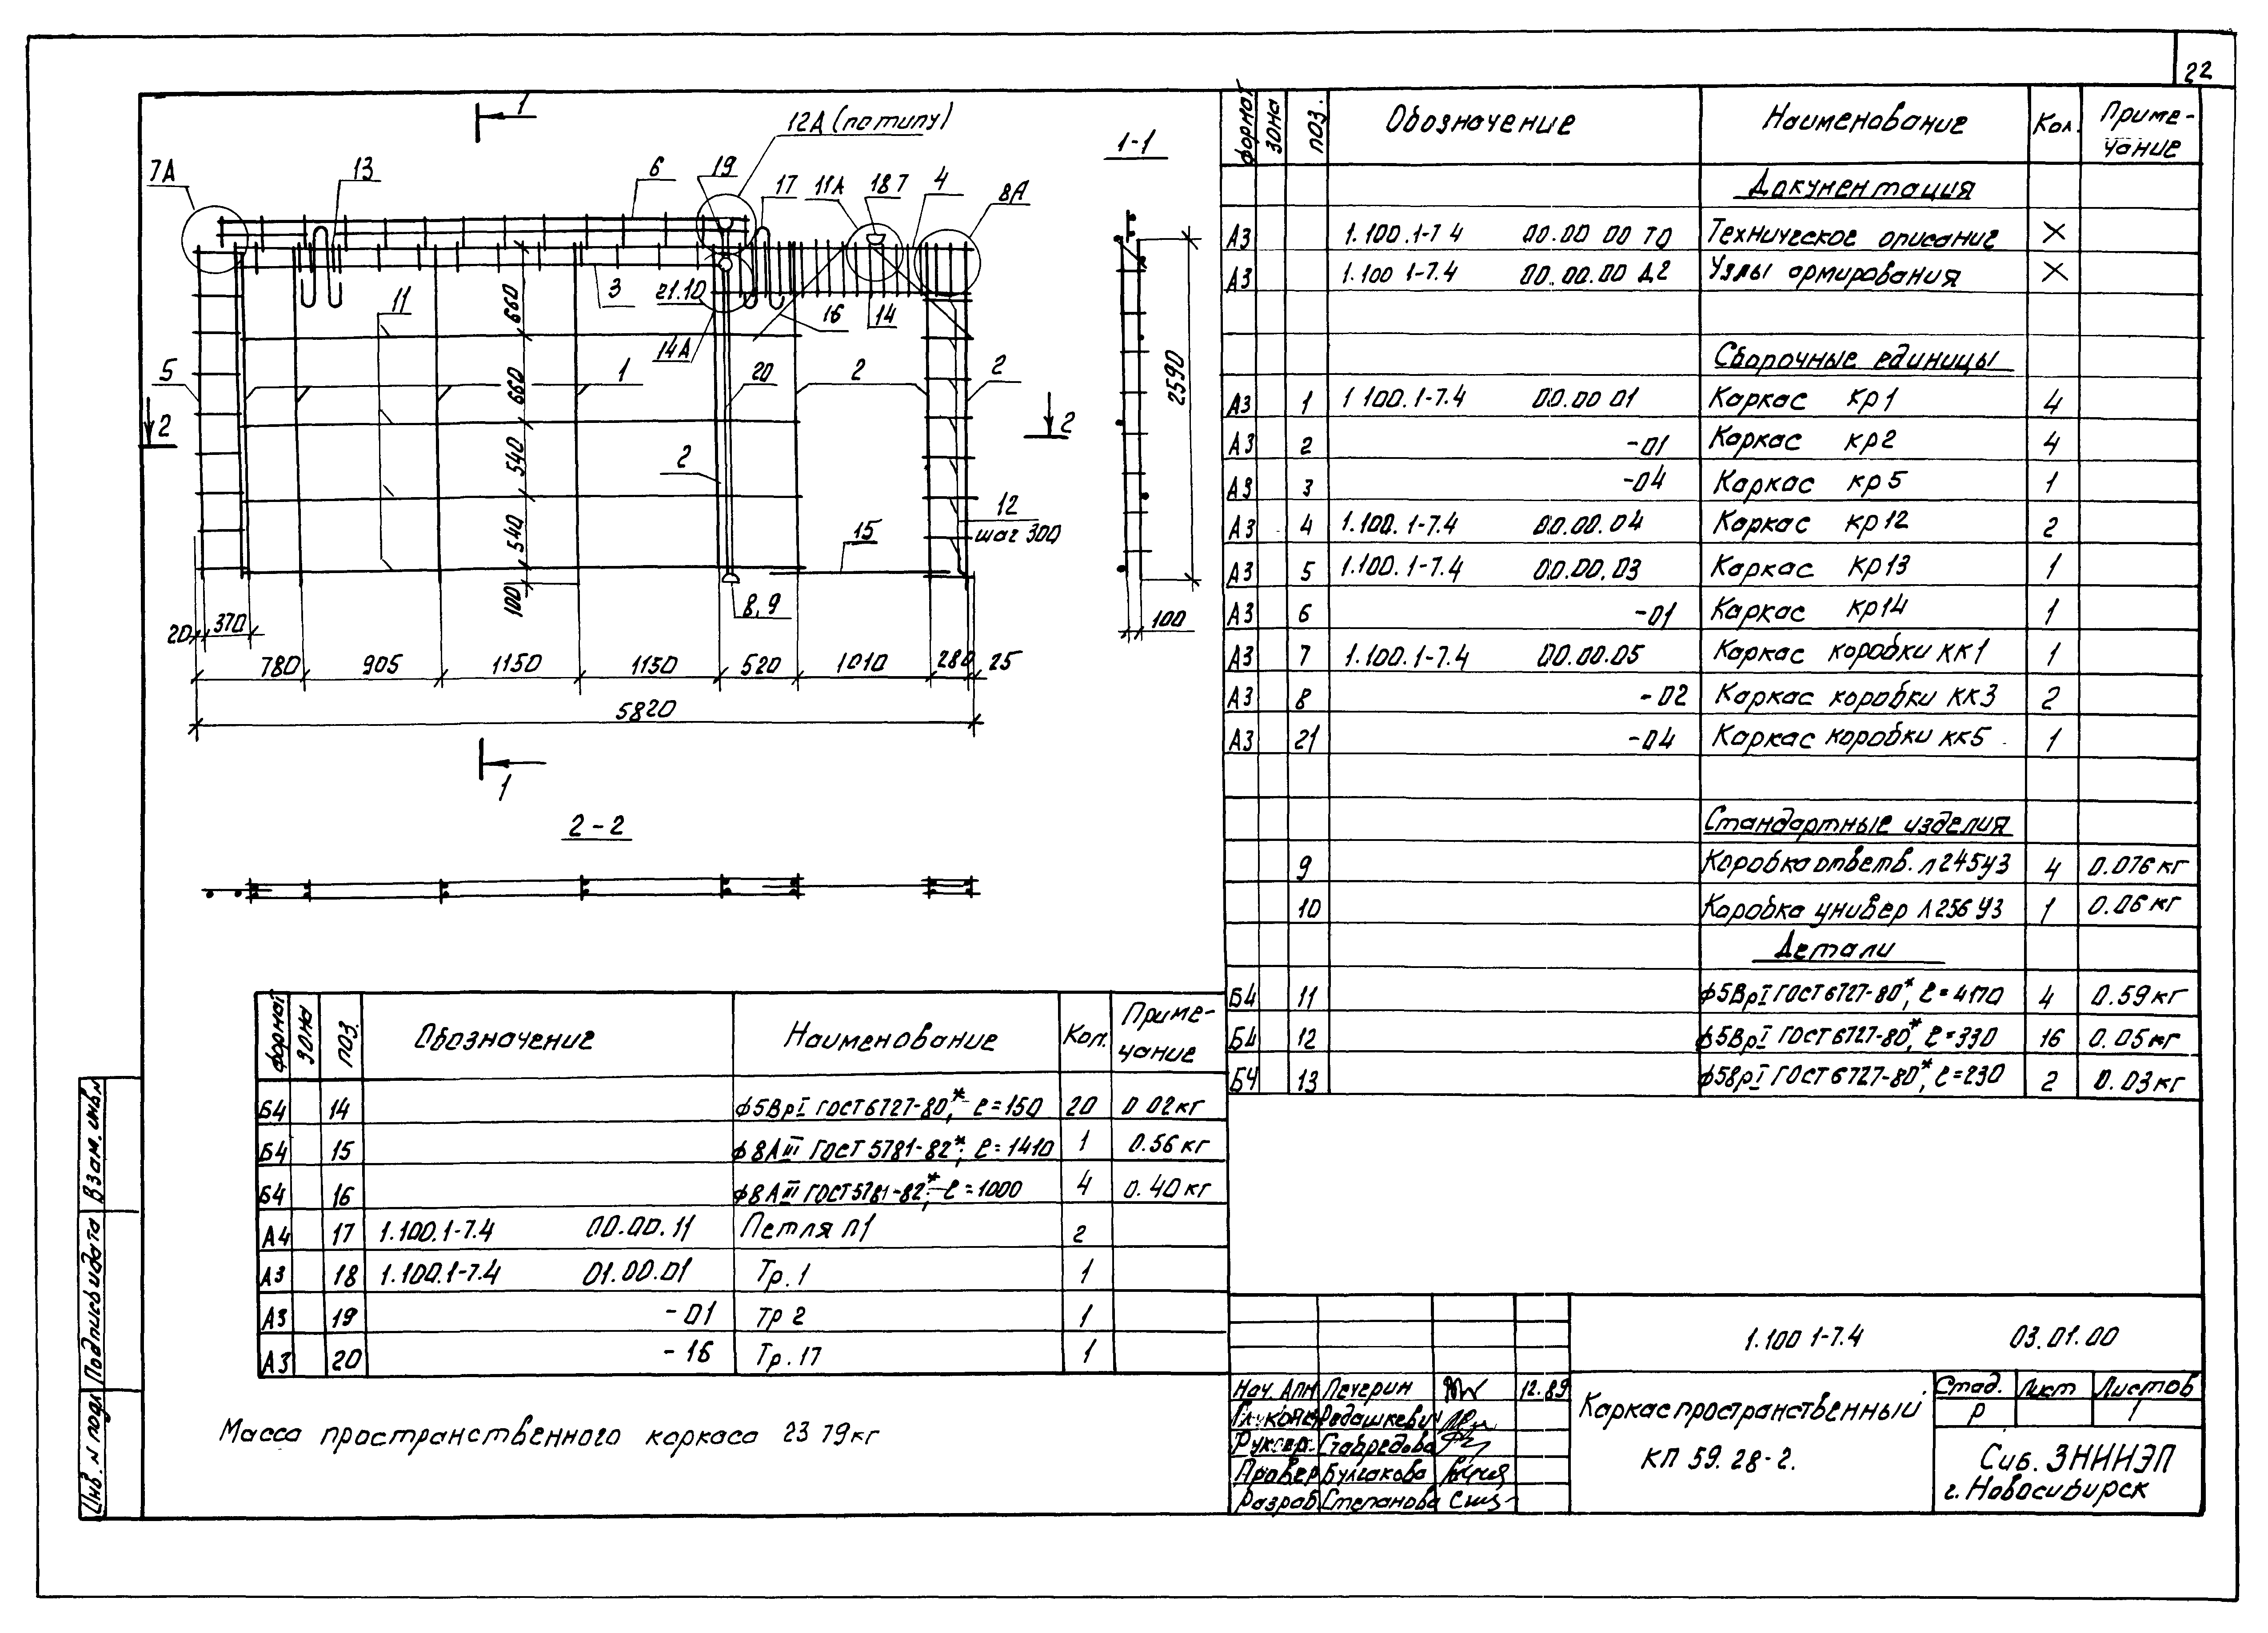 22
1
12А (по типу)
1-1
7А
13
6
19
17
11А
18 7
4
8А
3
21.10
16
14
11
14А
660
660
540
540
100
5
1
20
2
2
2
2
2
12
шаг 300
15
8, 9
2590
100
20
370
780
905
1150
1150
520
1010
280
25
5820
1
2-2
формат
зона
поз.
Обозначение
Наименование
Кол.
Приме-
чание
Документация
А3 1.100.1-7 4 00.00 00 ТО Техническое описание X
А3 1.100 1-7.4 00.00.00 Д2 Узлы армирования X
Сборочные единицы
А3 1 1 100.1-7.4 00.00 01 Каркас кр1 4
А3 2 -01 Каркас кр2 4
А3 3 -04 Каркас кр5 1
А3 4 1.100.1-7.4 00.00.04 Каркас кр12 2
А3 5 1.100.1-7.4 00.00.03 Каркас кр13 1
А3 6 -01 Каркас кр14 1
А3 7 1.100.1-7.4 00.00.05 Каркас коробки кк1 1
А3 8 -02 Каркас коробки кк3 2
А3 21 -04 Каркас коробки кк5 1
Стандартные изделия
9 Коробка ответв. л245у3 4 0.076 кг
10 Коробка универ л256 у3 1 0.06 кг
Детали
Б4 11 ф5ВрI ГОСТ 6727-80*, ℓ=4170 4 0.59 кг
Б4 12 ф5ВрI ГОСТ 6727-80*, ℓ=330 16 0.05 кг
Б4 13 ф5ВрI ГОСТ 6727-80*, ℓ=230 2 0.03 кг
формат
зона
поз.
Обозначение
Наименование
Кол.
Приме-
чание
Б4 14 ф5ВрI ГОСТ 6727-80,* ℓ=150 20 0 02 кг
Б4 15 ф8АIII ГОСТ 5781-82*; ℓ=1410 1 0.56 кг
Б4 16 ф8АIII ГОСТ 5781-82*, ℓ=1000 4 0.40 кг
А4 17 1.100.1-7.4 00.00.11 Петля п1 2
А3 18 1.100.1-7.4 01.00.01 Тр. 1 1
А3 19 -01 Тр 2 1
А3 20 -16 Тр. 17 1
Масса пространственного каркаса 23 79 кг
Взам. инв. №
Подпись и дата
Инв. № подл
1.100 1-7.4 03.01.00
Нач. АПМ Печерин 12.89
Гл.конс Радашкевич
Рук.гр. Ставредова
Провер Булгакова
Разраб. Степанова
Каркас пространственный
КП 59.28-2.
Стад. Лист Листов
Р 1
Сиб. ЗНИИЭП
г. Новосибирск